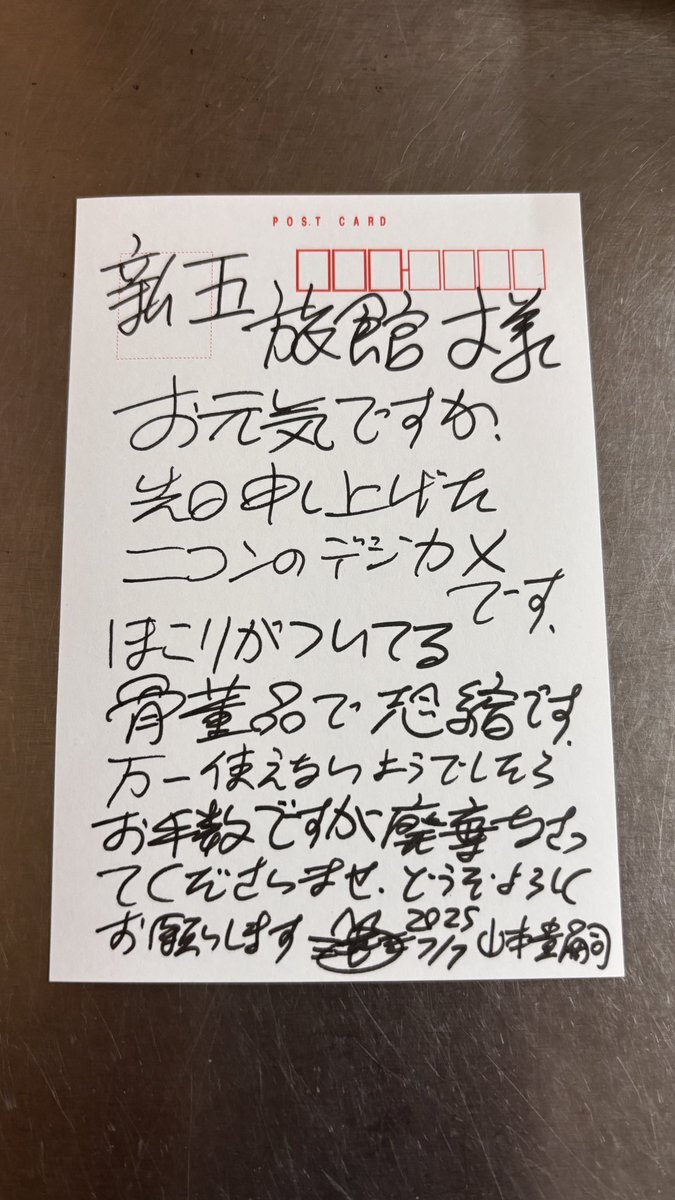 POST CARD
新五
旅館 様
お元気ですか、
先日申し上げた
ニコンのデジカメ
です、
ほこりがついてる
骨董品で恐縮です、
万一使えないようでしたら
お手数ですが廃棄なさっ
てくださいませ、どうぞよろしく
お願いします 2025
7/7 山本貴嗣